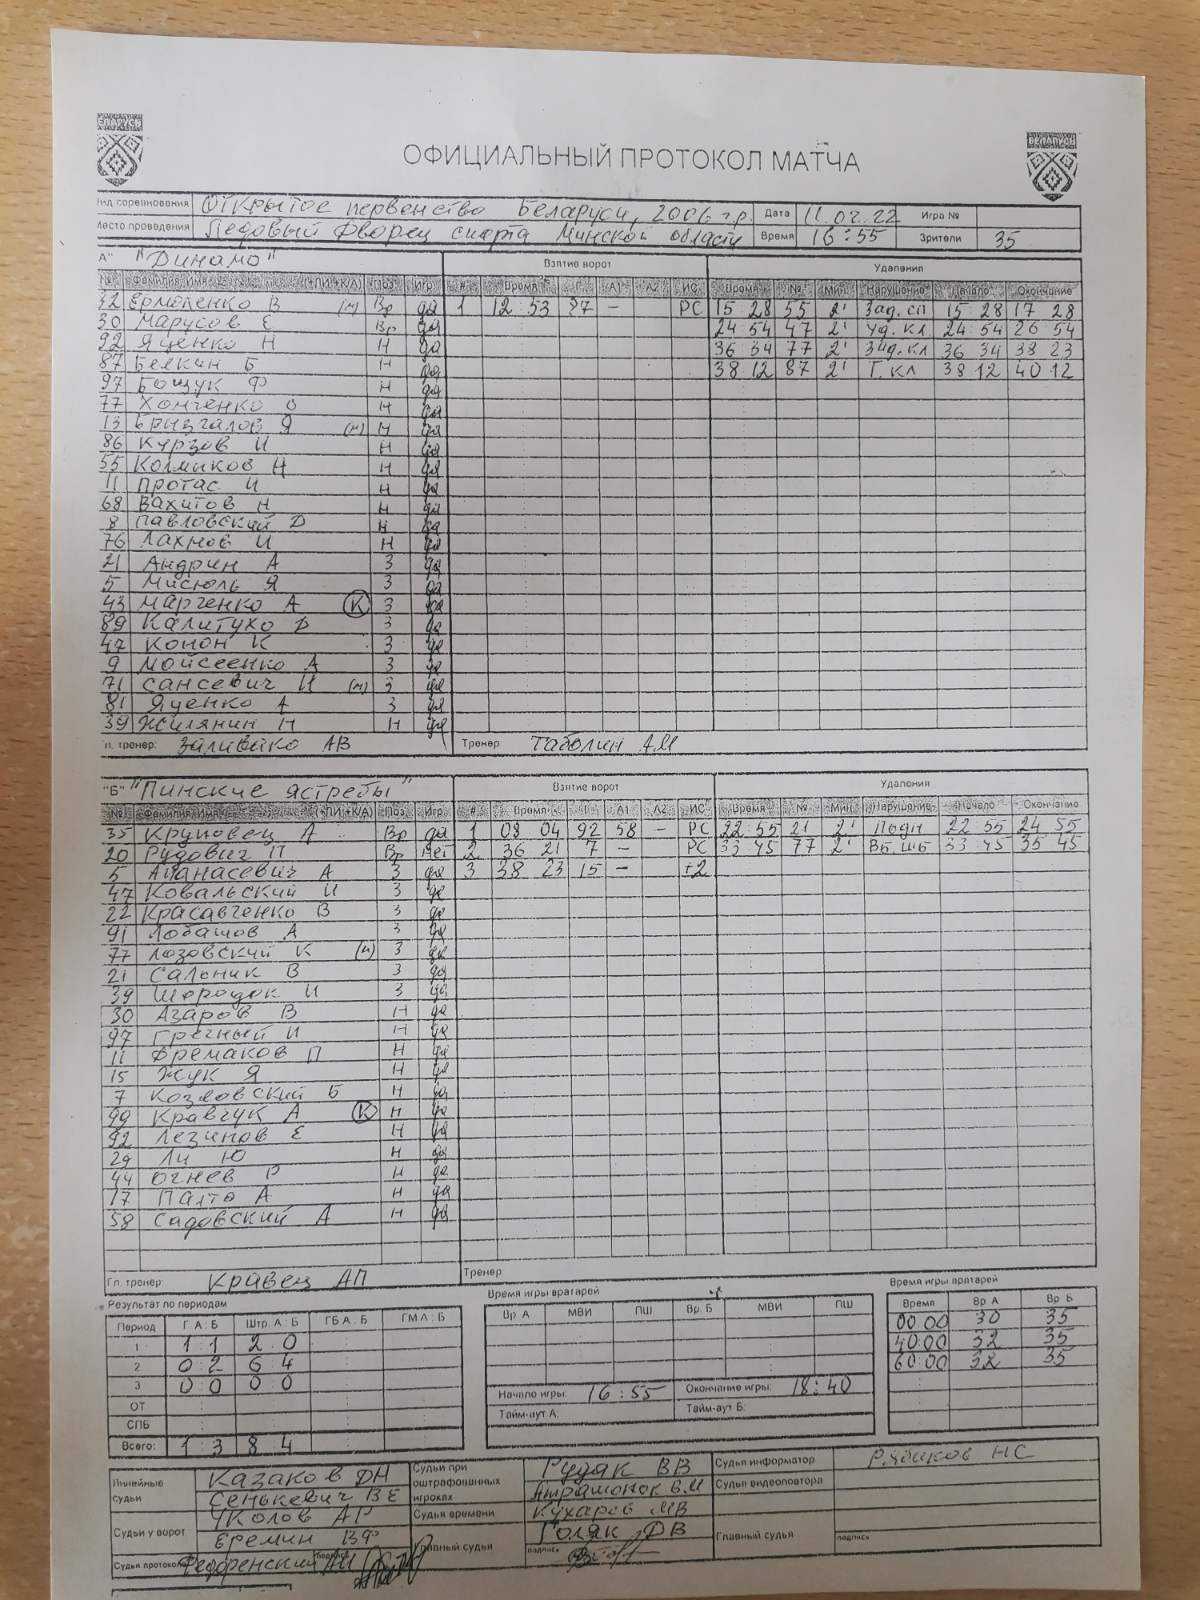 БЕЛАРУСЬ
ОФИЦИАЛЬНЫЙ ПРОТОКОЛ МАТЧА
Вид соревнования Открытое первенство Беларуси, 2006 г.р. Дата 11.02.22 Игра №
Место проведения Ледовый Дворец спорта Минской области Время 16:55 Зрители 35
"А" "Динамо" Взятие ворот Удаления
№ Фамилия Имя (+ПИ +К/А) Поз Игр # Время Г А1 А2 ИС Время № Мин Нарушение Начало Окончание
32 Ермоленко В (м) Вр да 1 12 53 97 – РС 15 28 55 2' Зад. сп 15 28 17 28
30 Марусов Е Вр да 24 54 47 2' Уд. кл 24 54 26 54
92 Яценко Н Н да 36 34 77 2' Зад. кл 36 34 38 23
87 Белкин Б Н да 38 12 87 2' Г. кл 38 12 40 12
97 Бощук Ф Н да
77 Хомченко О Н да
13 Брызгалов Я (м) Н да
86 Курзов И Н да
55 Колмыков Н Н да
11 Протас И Н да
68 Вахитов Н Н да
8 Павловский Д Н да
76 Лахнов И Н да
21 Андрин А З да
5 Мисюль Я З да
43 Марченко А (К) З да
89 Калитухо Д З да
47 Конон К З да
9 Мойсеенко А З да
71 Сансевич И (м) З да
81 Яценко А З да
39 Жилянин Н Н да
Гл. тренер: Заливако АВ Тренер Таболин А.М
"Б" "Пинские ястребы" Взятие ворот Удаления
№ Фамилия Имя (+ПИ +К/А) Поз Игр # Время Г А1 А2 ИС Время № Мин Нарушение Начало Окончание
35 Круповец А Вр да 1 08 04 92 58 – РС 22 55 21 2' Подн 22 55 24 55
20 Рудович П Вр нет 2 36 21 7 – РС 33 45 77 2' Вб. шб 33 45 35 45
5 Апанасевич А З да 3 38 23 15 – +2
47 Ковальский И З да
22 Красавченко В З да
91 Лобашов А З да
77 Лозовский К (м) З да
21 Сальник В З да
39 Шородок И З да
30 Азаров В Н да
97 Гречный И Н да
11 Ефремаков П Н да
15 Жук Я Н да
7 Козловский Б Н да
99 Кравчук А (К) Н да
92 Лезинов Е Н да
29 Ли Ю Н да
44 Огнев Р Н да
17 Палто А Н да
58 Садовский А Н да
Гл. тренер: Кривец АП Тренер
Результат по периодам Время игры вратарей Время игры вратарей
Период Г А : Б Штр. А : Б ГБ А : Б ГМ А : Б Вр. А МВИ ПШ Вр. Б МВИ ПШ Время Вр А Вр Б
1 1 1 2 0 00 00 30 35
2 0 2 6 4 40:00 32 35
3 0 0 0 0 60:00 32 35
ОТ Начало игры: 16:55 Окончание игры: 18:40
СПБ Тайм-аут А: Тайм-аут Б:
Всего: 1 3 8 4
Линейные судьи Казаков ДН Судьи при оштрафованных игроках Рудяк ВВ Судья информатор Рябиков НС
Сенькевич ВЕ Атрашонок В.И Судья видеоповтора
Судьи у ворот Чколов АР Судья времени Кухарев МВ
Еремин ВФ Главный судья Голяк ДВ Главный судья
Судья протокола подпись подпись подпись